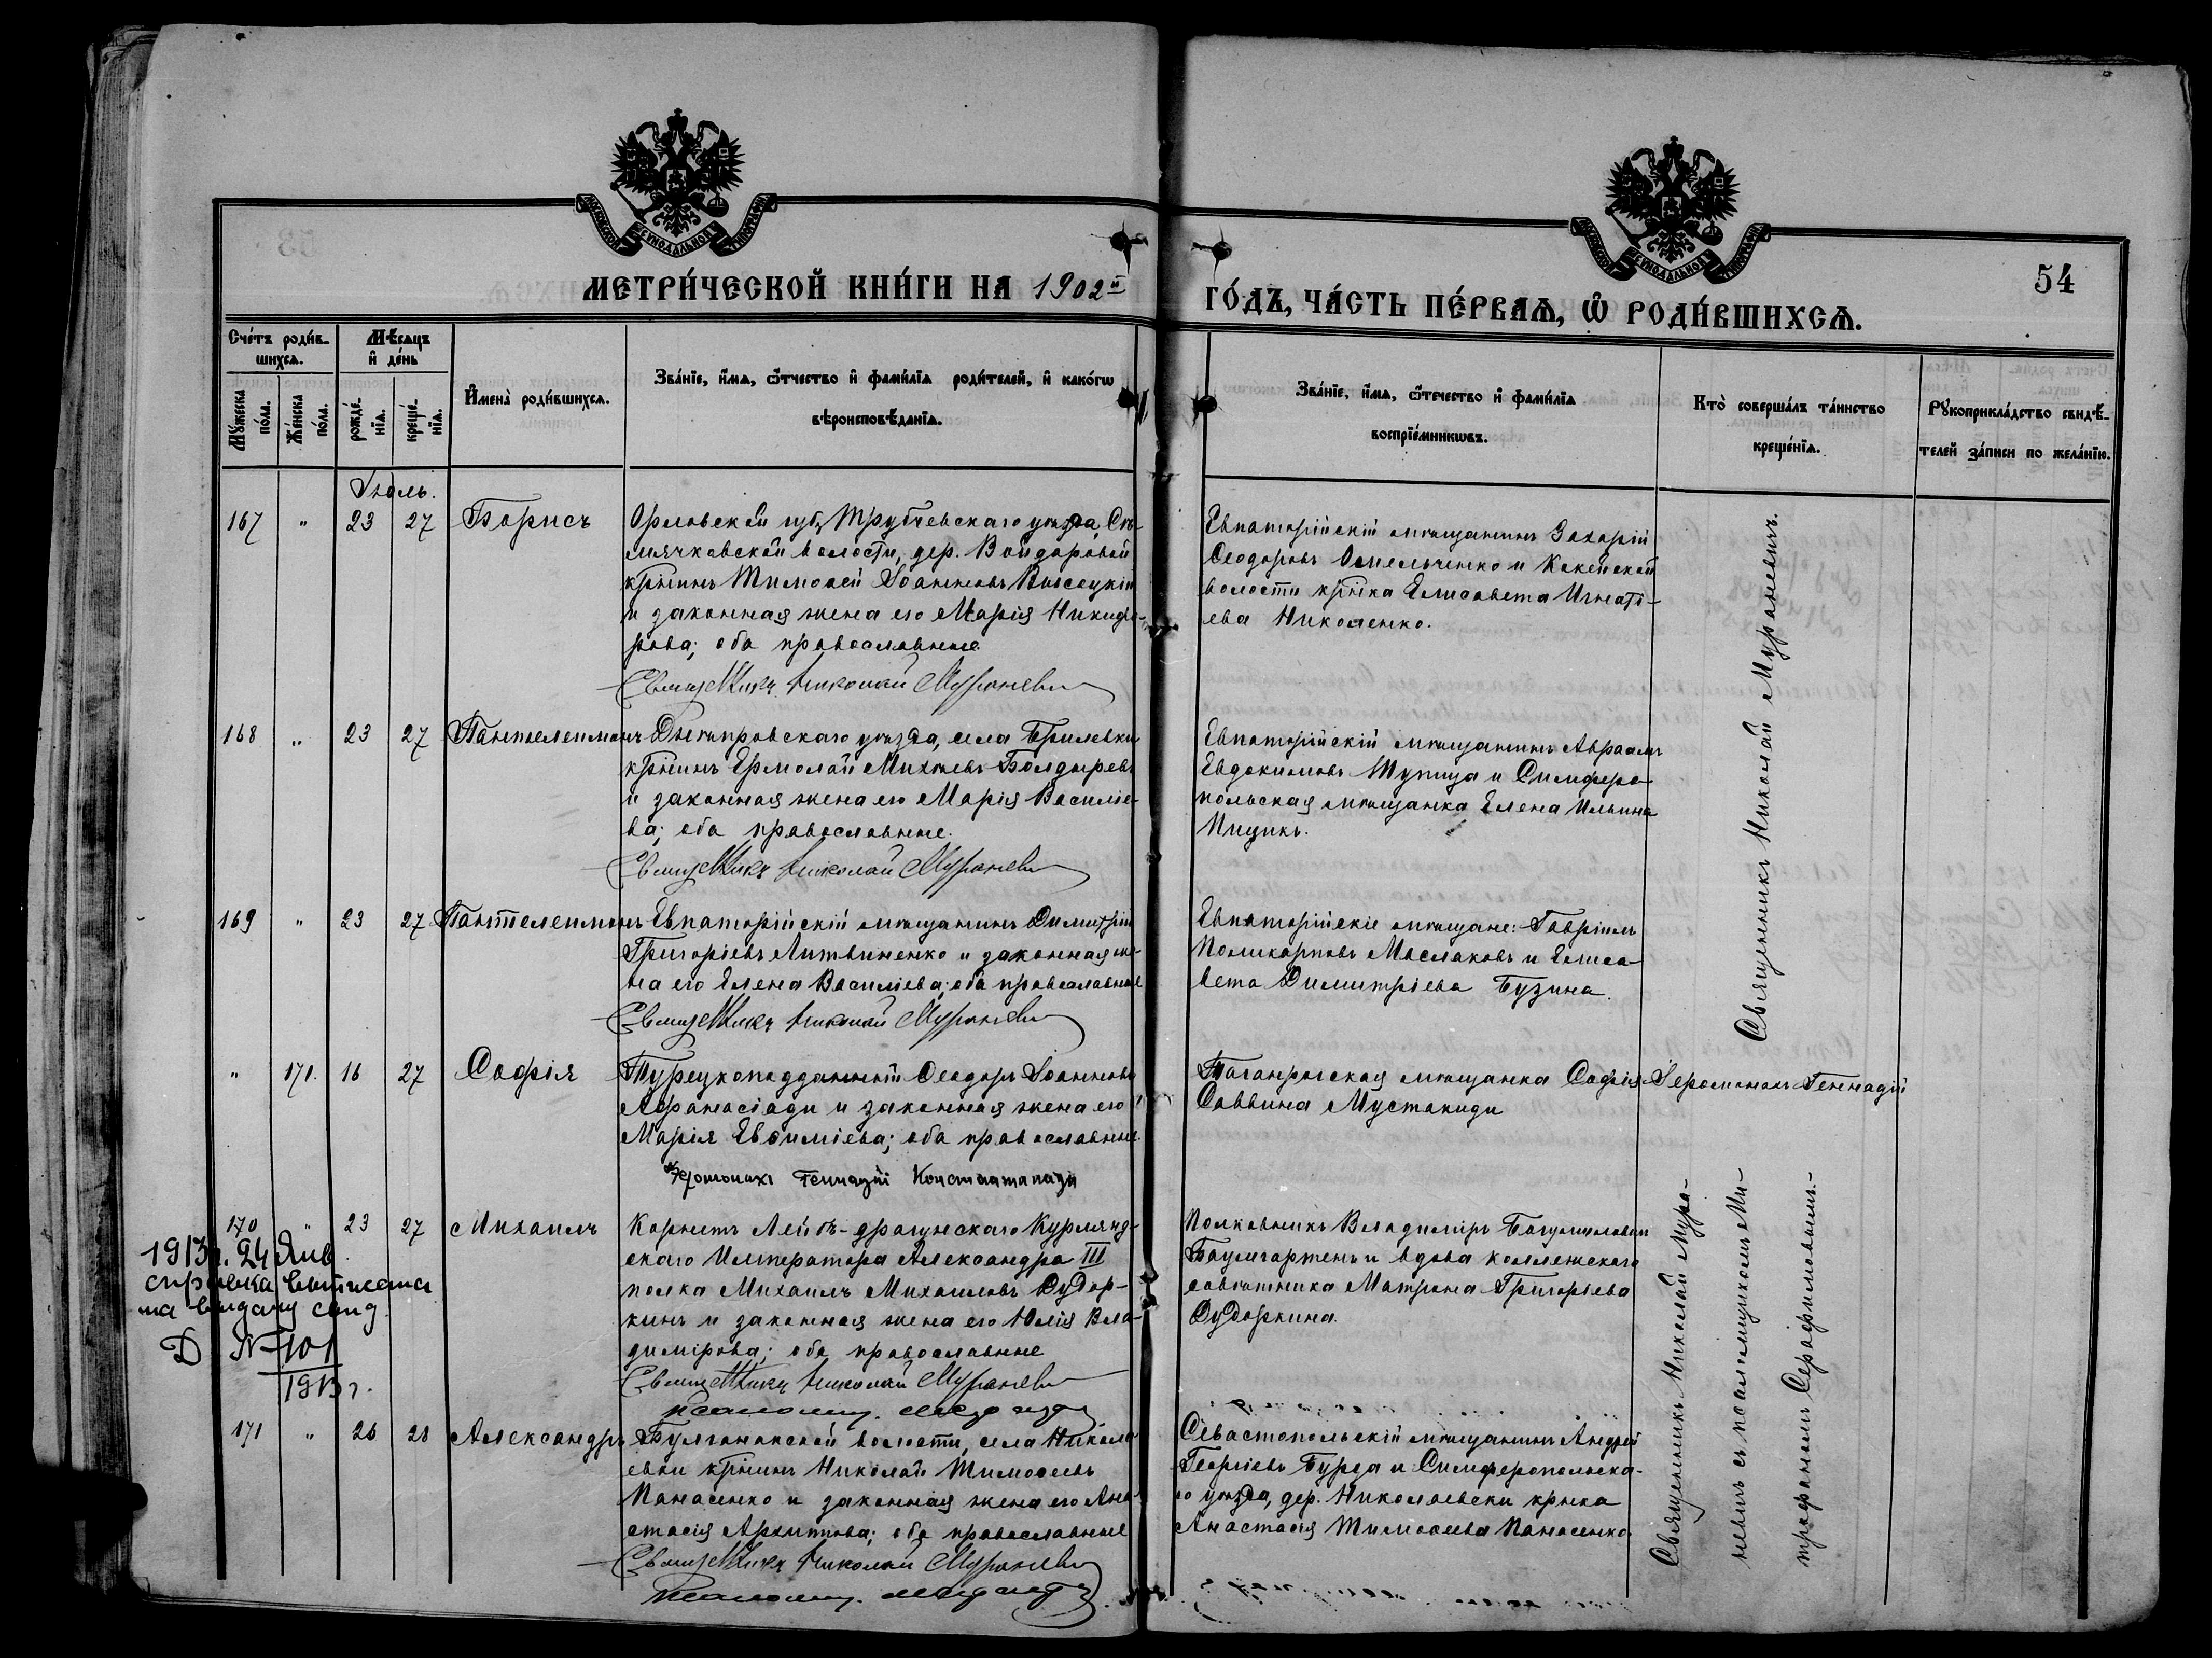 МЕТРИ́ЧЕСКОЙ КНИ́ГИ НА 1902й
ГО́ДЪ, ЧА́СТЬ ПЕ́РВАѦ, Ѡ҆ РОДИ́ВШИХСѦ.
54
Сче́тъ роди́в-
шихсѧ.
Мѣ́сѧцъ
и҆ де́нь
Мꙋ́жеска по́ла.
Же́нска по́ла.
рожде́-
нїѧ.
креще́-
нїѧ.
И҆мена̀ роди́вшихсѧ.
Зва́нїе, и҆́мѧ, ѻ҆́тчество и҆ фамѝлїѧ роди́телей, и҆ како́гѡ
вѣроисповѣ́данїѧ.
Зва́нїе, и҆́мѧ, ѻ҆те́чество и҆ фами́лїѧ
воспрїе́мникѡвъ.
Кто̀ соверша́лъ та́инство
креще́нїѧ.
Рꙋкоприкла́дство свидѣ́-
телей за́писи по жела́нїю.
Іюль.
167 " 23 27 Борисъ
Орловской губ, Трубчевскаго уѣзда,
волости, дер.
крінинъ Тимоѳей Іоанновъ Высоцкій
и законная жена его Марія Никифо-
рова; оба православные
Священникъ Николай Мураневичъ
Евпаторійскій мѣщанинъ Захарій
Ѳеодоровъ Омельченко и
волости крінка Елисавета Игнать-
ева Николенко.
Священникъ Николай Мураневичъ.
168 " 23 27 Пантелеимонъ
Днѣпровскаго уѣзда, села Брилевки
крінинъ Ермолай Болдыревъ
и законная жена его Марія Василіе-
ва; оба православные.
Священникъ Николай Мураневичъ
Евпаторійскій мѣщанинъ Авраамъ
Евдокимовъ Тупица и Симферо-
польская мѣщанка Елена Ильина
Пицикъ.
169 " 23 27 Пантелеимонъ
Евпаторійскій мѣщанинъ Димитрій
Григоріевъ Литвиненко и законная же-
на его Елена Василіева; оба православные
Священникъ Николай Мураневичъ
Евпаторійскіе мѣщане: Гавріилъ
Поликарповъ Маслаковъ и Елиса-
вета Димитріева Бузина.
" 171. 16 27 Софія
Турецкоподданный Ѳеодоръ Іоанновъ
Аѳанасіади и законная жена его
Марія Евѳиміева; оба православные.
Іеромонахъ Геннадій
Таганрогская мѣщанка Софія
Саввина Мустакиди
Іеромонахъ Геннадій
170 " 23 27 Михаилъ
Корнетъ Лейбъ-драгунскаго Курлянд-
скаго Императора Александра III
полка Михаилъ Михаиловъ Дудор-
кинъ и законная жена его Юлія Вла-
димірова; оба православные
Священникъ Николай Мураневичъ
псаломщ.
Полковникъ Владиміръ Богумиловичъ
Баумгартенъ и вдова коллежскаго
совѣтника Матрона Григорьева
Дудоркина.
1913 г. 24 Янв
справка выписана
на выдачу свид
Д № 101
1913 г.
Священникъ Николай Мура-
невичъ съ псаломщикомъ Ми-
трофаномъ Серафимовымъ.-
171 " 26 28 Александръ
Булганакской волости, села Никола-
евки крінинъ Николай Тимоѳеевъ
Панасенко и законная жена его Ана-
стасія Архиппова; оба православные
Священникъ Николай Мураневичъ
псаломщ.
Севастопольскій мѣщанинъ Андрей
Георгіевъ Бурда и Симферопольска-
го уѣзда, дер. Николаевки крнка
Анастасія Тимоѳеева Панасенко.